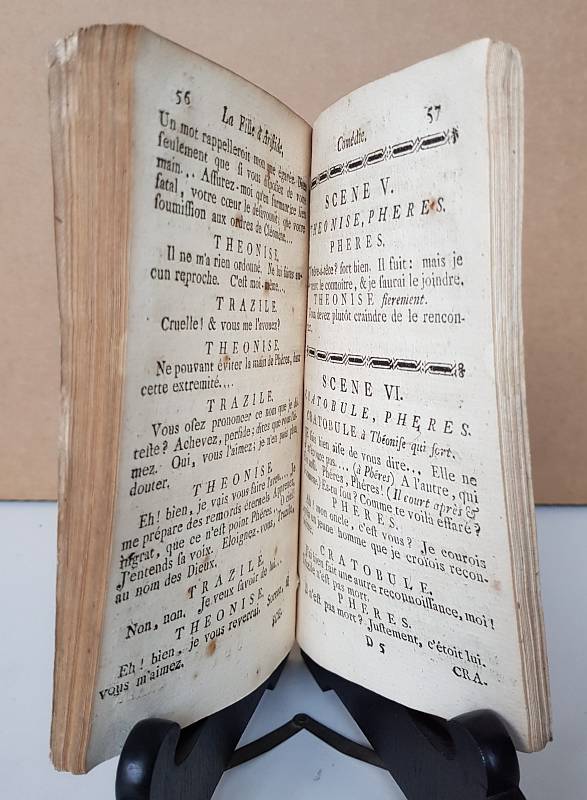 56
La Fille d'Aristide,
Un mot rappelleroit mon ame égarée. Dites
seulement que si vous disposez de votre
main... Assurez-moi qu'en
fatal, votre cœur le désavoue; que votre
soumission aux ordres de Cléomene...
THEONISE.
Il ne m'a rien ordonné. Ne lui faites au-
cun reproche. C'est moi-même...
TRAZILE.
Cruelle! & vous me l'avouez?
THEONISE.
Ne pouvant éviter la main de Phéres, sans
cette extremité...
TRAZILE.
Vous osez prononcer ce nom que je dé-
teste? Achevez, perfide; dites que vous l'ai-
mez. Oui, vous l'aimez; je n'en puis plus
douter.
THEONISE.
Eh! bien, je vais vous faire l'aveu.... Je
me prépare des remords éternels. Apprenez,
ingrat, que ce n'est point Phéres.... O ciel!
J'entends sa voix. Eloignez-vous, Trazile,
au nom des Dieux.
TRAZILE.
Non, non. Je veux savoir de lui...
THEONISE.
Eh! bien, je vous reverrai. Sortez, si
vous m'aimez.
SCE-
57
Comédie.
SCENE V.
THEONISE, PHERES.
PHERES.
Tête-à-tête? fort bien. Il fuit: mais je
veux le connoître, & je saurai le joindre.
THEONISE fierement.
Vous devez plutôt craindre de le rencon-
trer.
SCENE VI.
CRATOBULE, PHERES.
CRATOBULE à Théonise qui sort.
suis bien aise de vous dire... Elle ne
m'écoute pas.... (à Phéres) A l'autre, qui
Phéres, Phéres! (Il court après &
es-tu fou? Comme te voilà effaré?
PHERES.
Ah! mon oncle, c'est vous? Je courois
un jeune homme que je croiois recon-
CRATOBULE.
J'ai bien fait une autre reconnoissance, moi!
n'est pas mort.
PHERES.
Il n'est pas mort? Justement, c'étoit lui.
D 5
CRA-